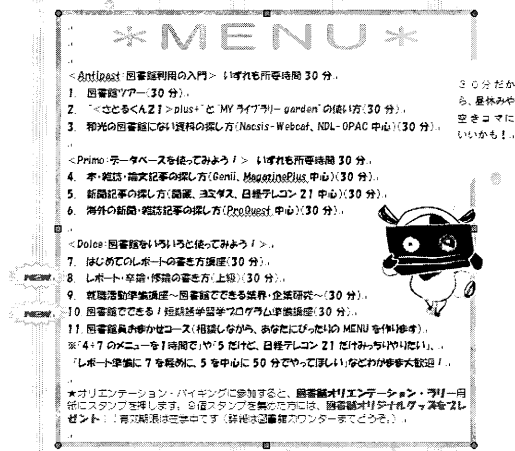 *MENU*
<Antipast:図書館利用の入門> いずれも所要時間 30 分
1. 図書館ツアー(30 分)
2. "<さとるくん21>plus+"と"MY ライブラリー garden"の使い方(30 分)
3. 和光の図書館にない資料の探し方(Nacsis-Webcat、NDL-OPAC 中心)(30 分)
<Primo:データベースを使ってみよう!> いずれも所要時間 30 分
4. 本・雑誌・論文記事の探し方(Genii、MagazinePlus 中心)(30 分)
5. 新聞記事の探し方(聞蔵、ヨミダス、日経テレコン 21 中心)(30 分)
6. 海外の新聞・雑誌記事の探し方(ProQuest 中心)(30 分)
<Dolce:図書館をいろいろと使ってみよう!>
7. はじめてのレポートの書き方講座(30 分)
NEW 8. レポート・卒論・修論の書き方(上級)(30 分)
9. 就職活動準備講座~図書館でできる業界・企業研究~(30 分)
NEW 10. 図書館でできる!短期語学留学プログラム準備講座(30 分)
11. 図書館員おまかせコース(相談しながら、あなたにぴったりの MENU を作ります)
※「4+7 のメニューを 1 時間で」や「5 だけど、日経テレコン 21 だけみっちりやりたい」、
「レポート準備に 7 を軽めに、5 を中心に 50 分でやってほしい」などわがまま大歓迎!
★オリエンテーション・バイキングに参加すると、図書館オリエンテーション・ラリー用
紙にスタンプを押します。 スタンプを集めた方には、図書館オリジナルグッズをプレ
ゼント!!有効期限は在学中です(詳細は図書館カウンターまでどうぞ。)
30分だか
ら、昼休みや
空きコマに
いいかも!